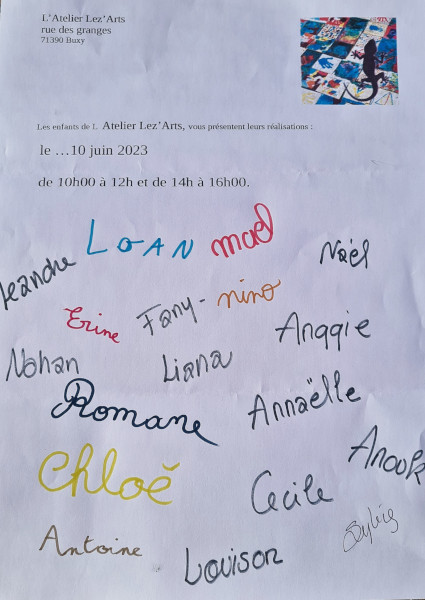 L'Atelier Lez'Arts
rue des granges
71390 Buxy
Les enfants de L Atelier Lez'Arts, vous présentent leurs réalisations :
le …10 juin 2023
de 10h00 à 12h et de 14h à 16h00.
LOAN mael
Naël
Leandre
Erine Fany- nino
Anggie
Nohan Liana
Romane Annaëlle
Anouk
Chloé Cecile
Antoine Louison